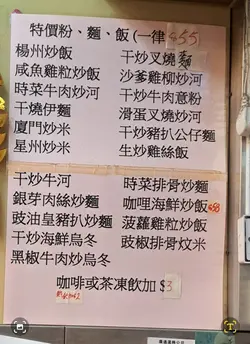 特價粉、麵、飯 (一律 $55)
楊州炒飯
咸魚雞粒炒飯
時菜牛肉炒河
干燒伊麵
廈門炒米
星州炒米
干炒叉燒麵
沙爹雞柳炒河
干炒牛肉意粉
滑蛋叉燒炒河
干炒豬扒公仔麵
生炒雞絲飯
干炒牛河
銀芽肉絲炒麵
豉油皇豬扒炒麵
干炒海鮮烏冬
黑椒牛肉炒烏冬
時菜排骨炒麵
咖哩海鮮炒飯
菠蘿雞粒炒飯
豉椒排骨炆米
咖啡或茶凍飲加 $3